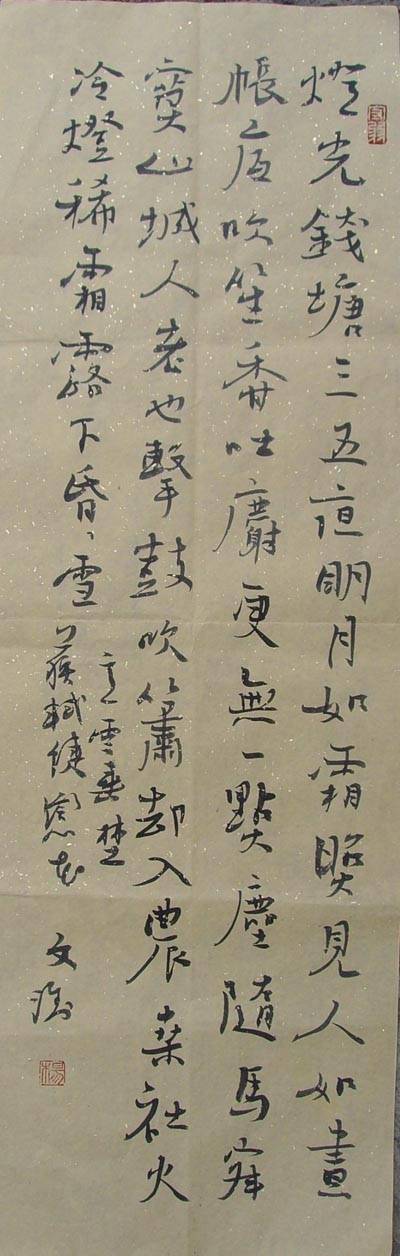 燈光錢塘三五夜明月如霜照見人如畫
帳底吹笙香吐麝更無一點塵隨馬寂
寞山城人老也擊鼓吹簫却入農桑社火
冷燈稀霜露下昏、雪
意雲垂野
蘇軾蝶戀花
文